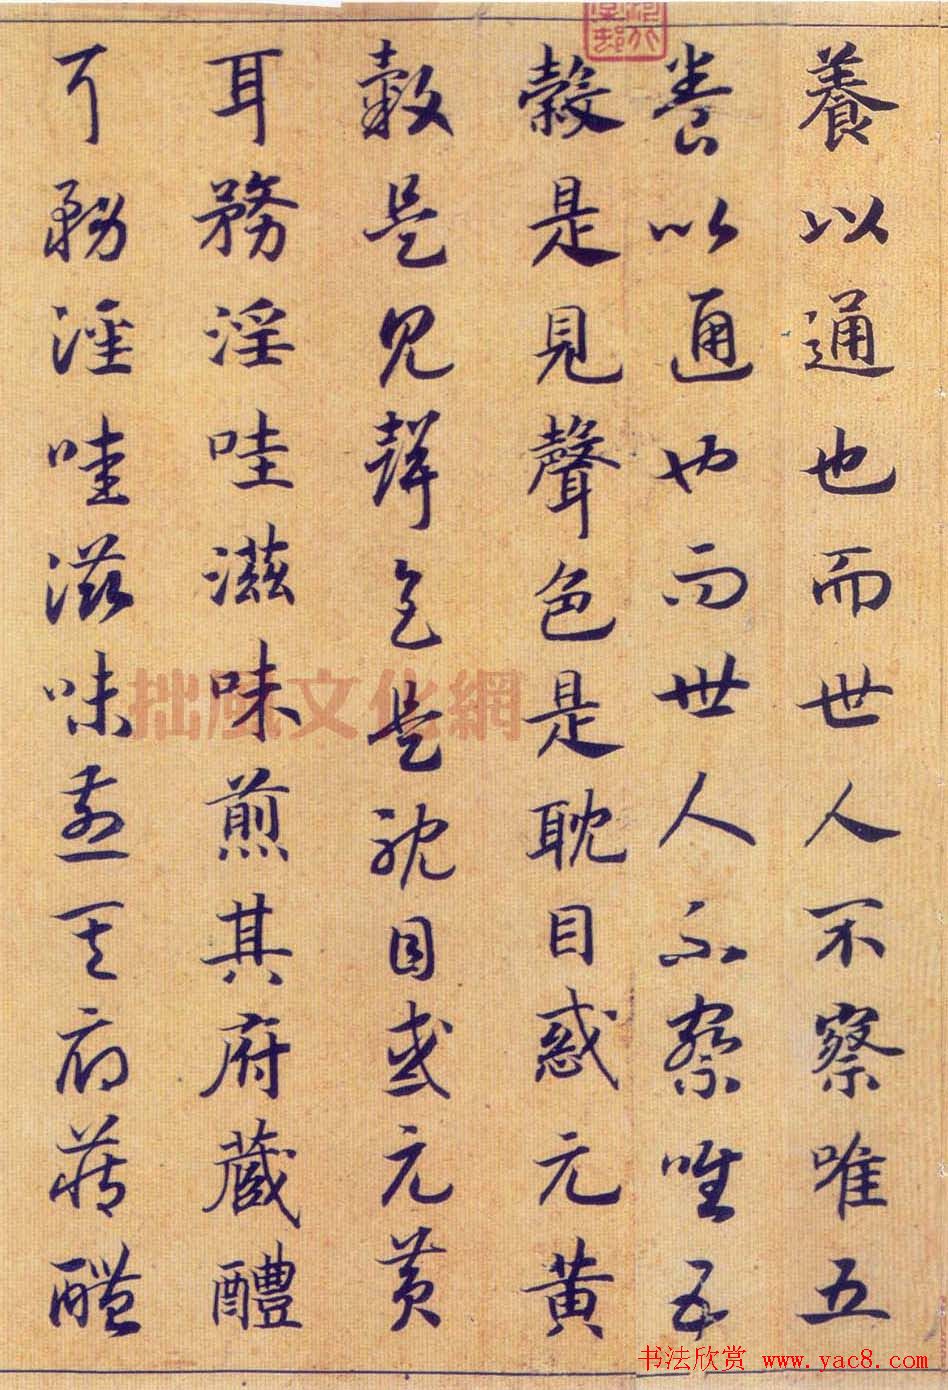 養以通也而世人不察唯五
養以通也而世人不察唯五
榖是見聲色是耽目惑元黄
榖是見聲色是耽目惑元黄
耳務淫哇滋味煎其府藏醴
耳務淫哇滋味煎其府藏醴
拙風文化網
书法欣赏 www.yac8.com